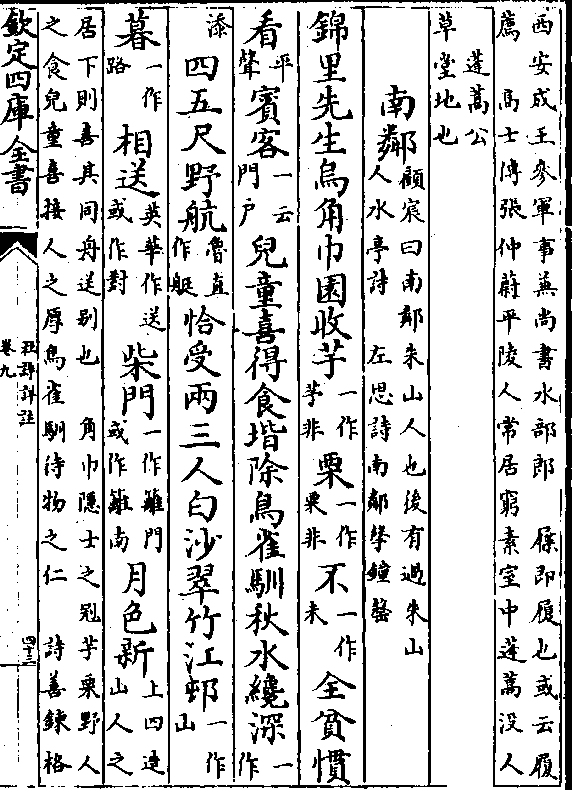 西安成王參軍事兼尚書水部郎　屧即履也或云履
薦　高士傳張仲蔚平陵人常居窮素室中蓬蒿没人
蓬蒿公
草堂地也
南鄰顧宸曰南鄰朱山人也後有過朱山
人水亭詩　左思詩南鄰擊鐘磬
錦里先生烏角巾園收芋一作芧非栗一作粟非不一作未全貧慣
看平聲賓客一云門户兒童喜得食堦除鳥雀馴秋水纔深一作
添四五尺野航魯直作艇恰受兩三人白沙翠竹江邨一作山
暮一作路相送英華作送或作對柴門一作籬門或作籬南月色新上四連山人之
居下則喜其同舟送别也　角巾隱士之冠芋栗野人
之食兒童喜接人之厚鳥雀馴待物之仁　詩善鍊格
欽定四庫全書
杜詩詳註
卷九
四十三